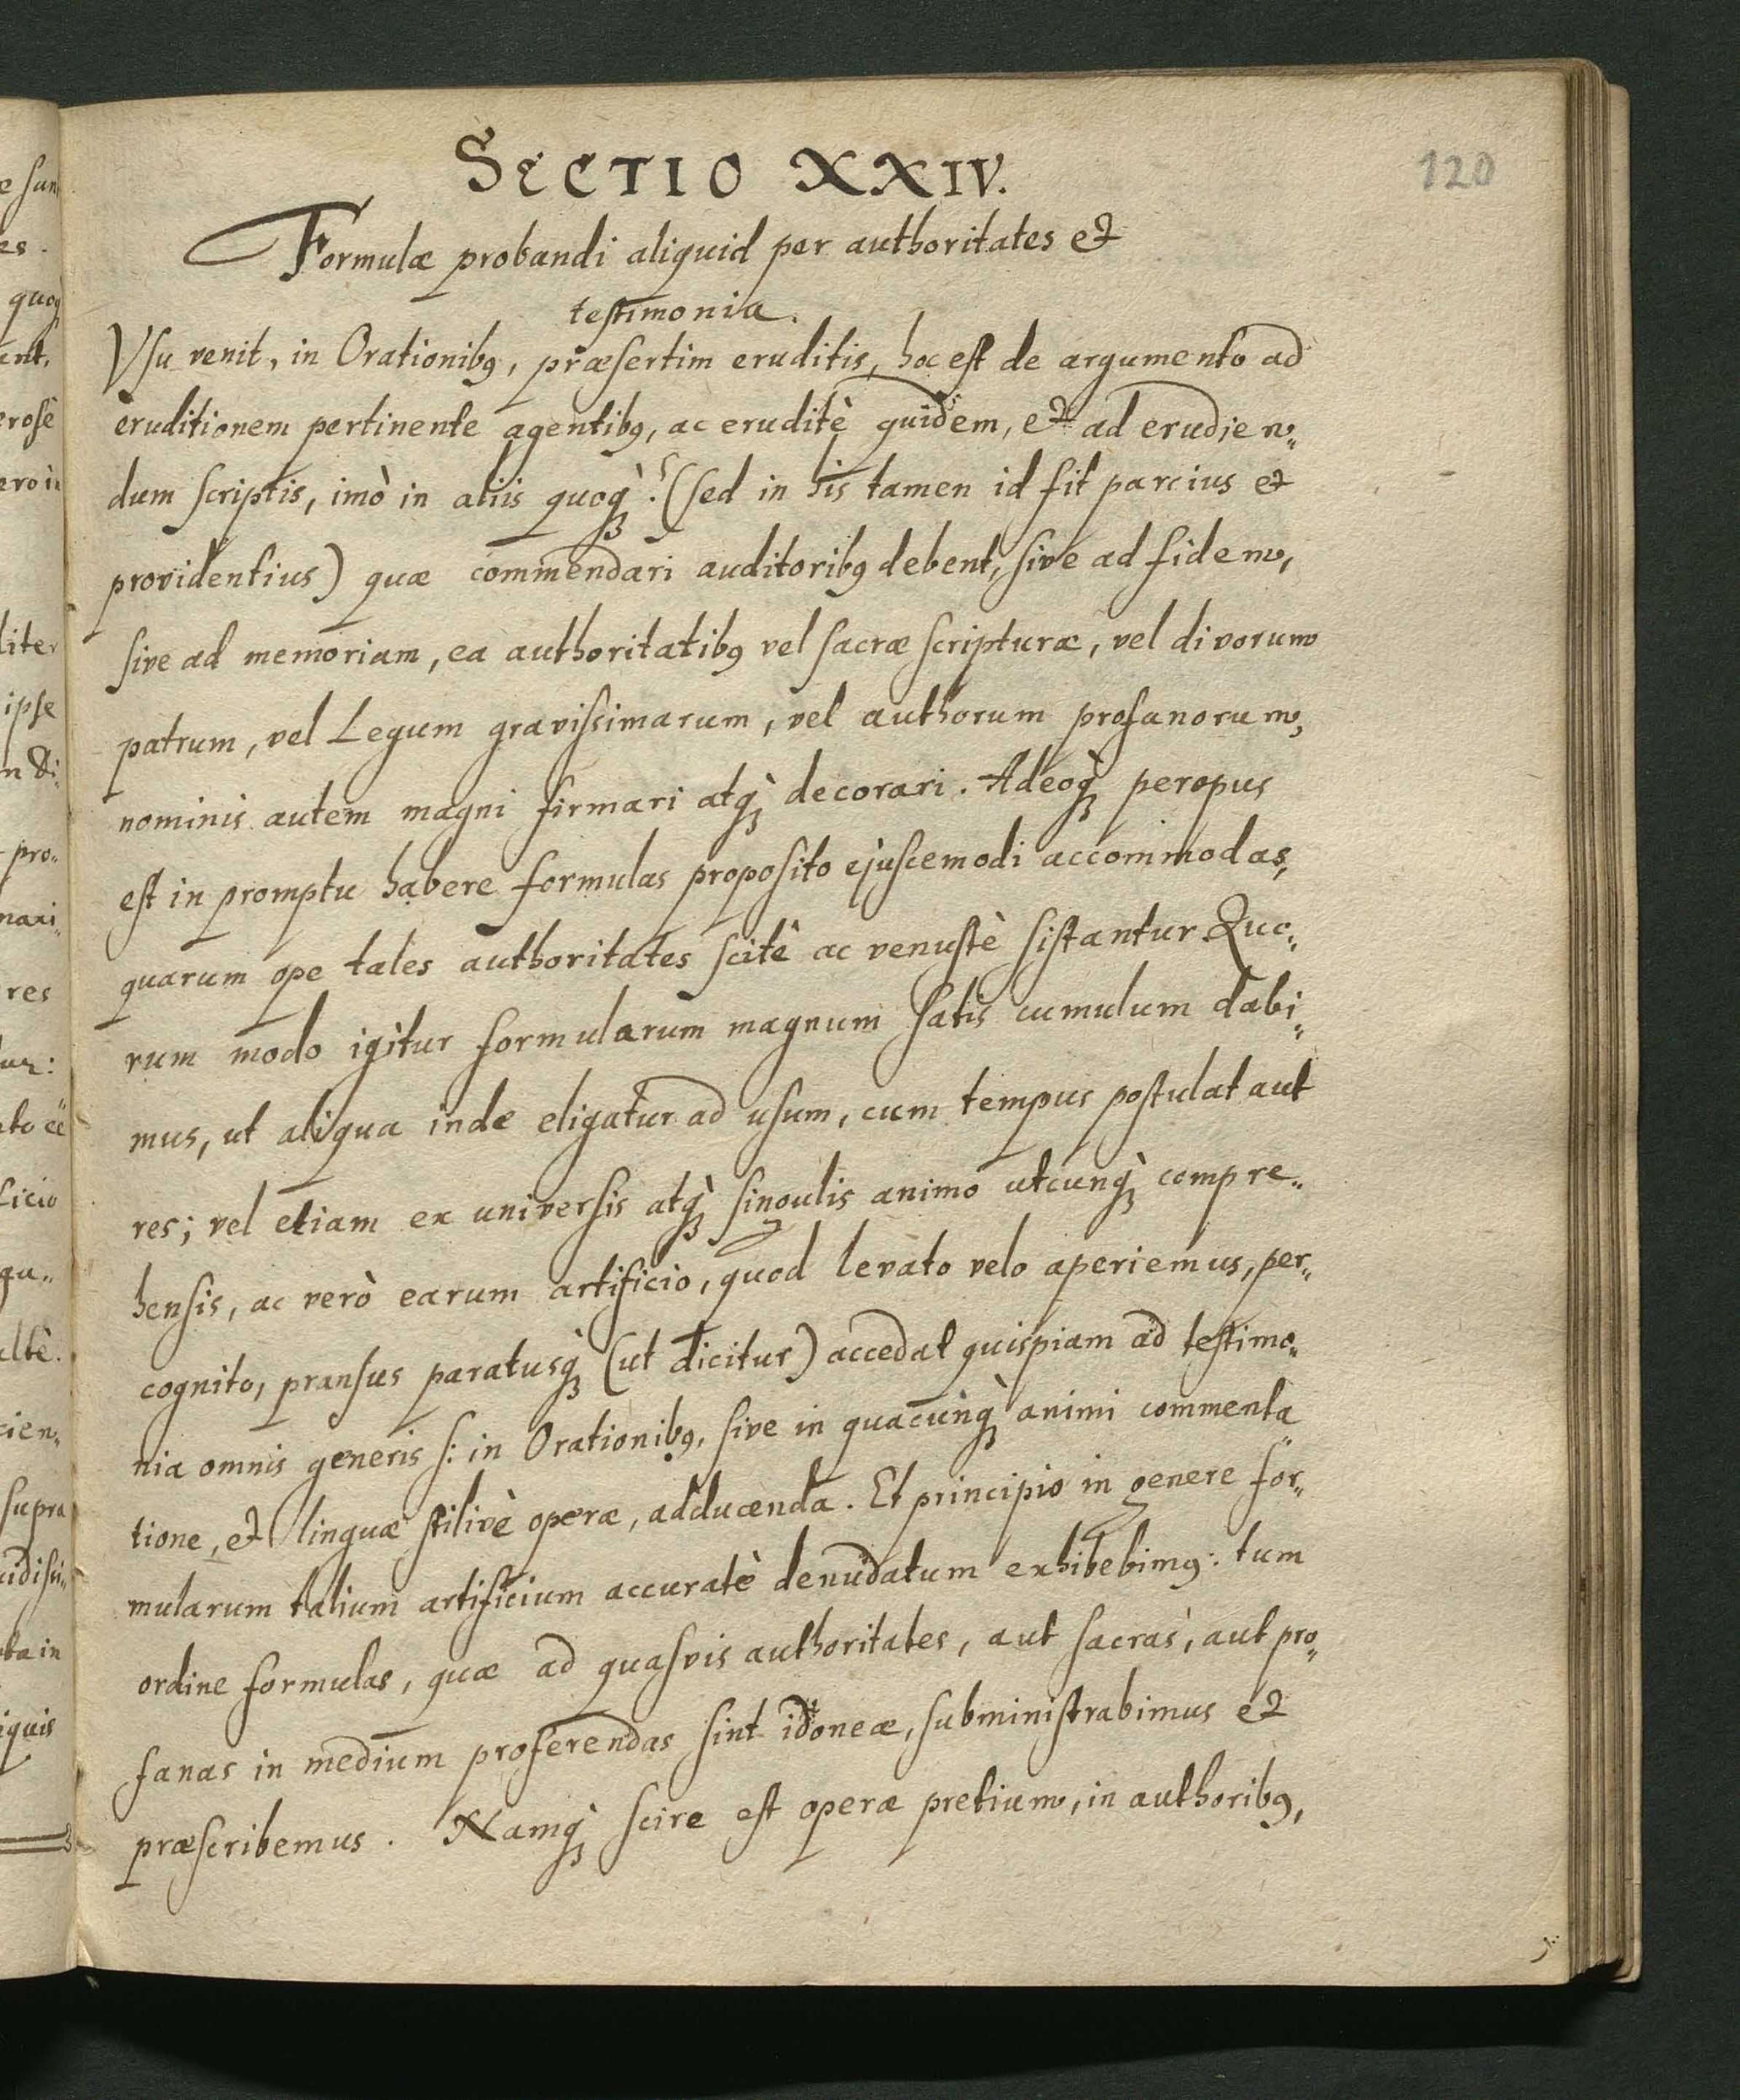 SECTIO XXIV.
120
Formulæ probandi aliquid per authoritates et
testimonia.
Vsu venit, in Orationibꝰ, præsertim eruditis, hoc est de argumento ad
eruditionem pertinente agentibꝰ, ac eruditè quidem, et ad erudien„
dum scriptis, imò in aliis quoqꝫ̀: (sed in his tamen id fit parcius et
providentius) quæ commendari auditoribꝰ debent, sive ad fidem,
sive ad memoriam, ea authoritatibꝰ vel sacræ scripturæ, vel divorum
patrum, vel Legum gravissimarum, vel authorum profanorum,
nominis autem magni firmari atqꝫ̀ decorari. Adeoqꝫ̀ peropus
est in promptu habere formulas proposito ejuscemodi accommodas,
quarum ope tales authoritates scitè ac venustè sistantur Quo„
rum modo igitur formularum magnum satis cumulum dabi„
mus, ut aliqua inde eligatur ad usum, cum tempus postulat aut
res; vel etiam ex universis atqꝫ̀ singulis animo utcunqꝫ̀ compre„
hensis, ac verò earum artificio, quod levato velo aperiemus, per„
cognito, pransus paratusqꝫ̀ (ut dicitur) accedat quispiam ad testimo„
nia omnis generis s: in Orationibꝰ, sive in quacunqꝫ̀ animi commenta„
tione, et linguæ stilivè operæ, adducenda. Et principio in genere for„
mularum talium artificium accuratè denudatum exhibebimꝰ: tum
ordine formulas, quæ ad quasvis authoritates, aut sacras, aut pro„
fanas in medium proferendas sint idoneæ, subministrabimus et
præscribemus. Namqꝫ̀ scire est operæ pretium, in authoribꝰ,